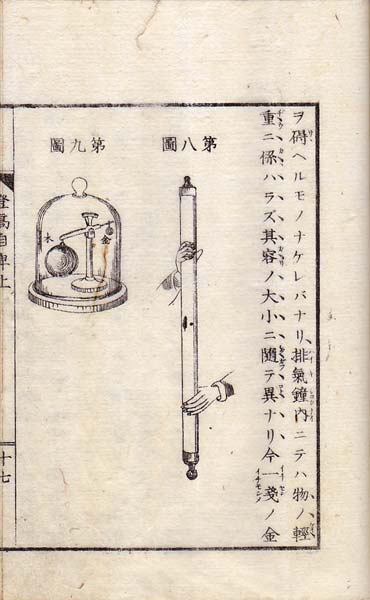 ヲ碍ヘルモノナケレバナリ、排氣鐘内ニテハ物ノ輕
重ニ係ハラズ其容ノ大小ニ隨テ異ナリ今一戔ノ金
第八圖
第九圖
金
木
登高自卑上
十七